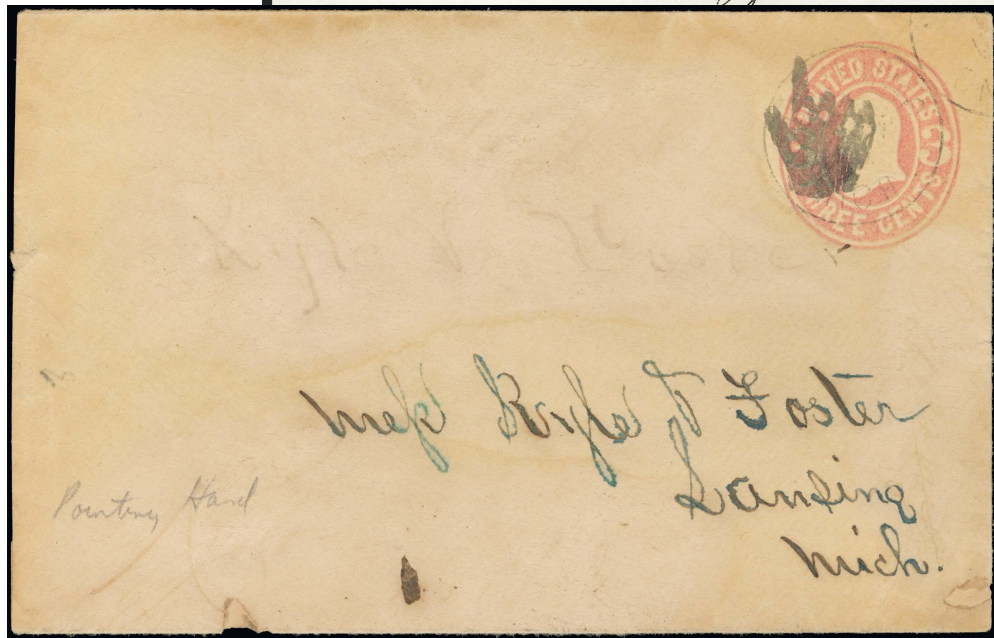 UNITED STATES
THREE CENTS
Mess Kyle & Foster
Lansing
Mich.
Pointing Hand